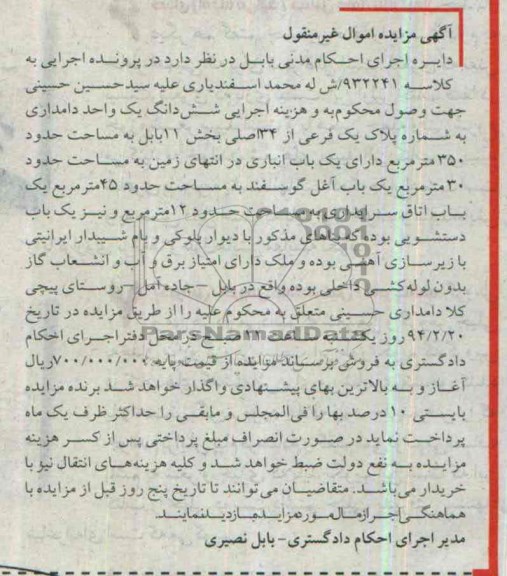 آگهی مزایده اموال غیرمنقول
دایره اجرای احکام مدنی بابل در نظر دارد در پرونده اجرایی به
کلاسه ۹۳۲۲۴۱/ش له محمد اسفندیاری علیه سیدحسین حسینی
جهت وصول محکوم‌به و هزینه اجرایی شش‌دانگ یک واحد دامداری
به شماره پلاک یک فرعی از ۳۴اصلی بخش ۱۱بابل به مساحت حدود
۳۵۰ مترمربع دارای یک باب انباری در انتهای زمین به مساحت حدود
۳۰ مترمربع یک باب آغل گوسفند به مساحت حدود ۴۵مترمربع یک
باب اتاق سرایداری به مساحت حدود ۱۲مترمربع و نیز یک باب
دستشویی بوده که بناهای مذکور با دیوار بلوکی و بام شیبدار ایرانیتی
با زیرسازی آهنی بوده و ملک دارای امتیاز برق و آب و انشعاب گاز
بدون لوله‌کشی داخلی بوده واقع در بابل – جاده آمل – روستای پیچی
کلا دامداری حسینی متعلق به محکوم علیه را از طریق مزایده در تاریخ
۹۴/۲/۲۰ روز یکشنبه ساعت صبح در محل دفتر اجرای احکام
دادگستری به فروش برساند مزایده از قیمت پایه ۷۰۰/۰۰۰/۰۰۰ریال
آغاز و به بالاترین بهای پیشنهادی واگذار خواهد شد برنده مزایده
بایستی ۱۰ درصد بها را فی‌المجلس و مابقی را حداکثر ظرف یک ماه
پرداخت نماید در صورت انصراف مبلغ پرداختی پس از کسر هزینه
مزایده به نفع دولت ضبط خواهد شد و کلیه هزینه‌های انتقال نیز با
خریدار می‌باشد. متقاضیان می‌توانند تا تاریخ پنج روز قبل از مزایده با
هماهنگی اجرا از مال مورد مزایده بازدید نمایند.
مدیر اجرای احکام دادگستری- بابل نصیری
ParsNamadData